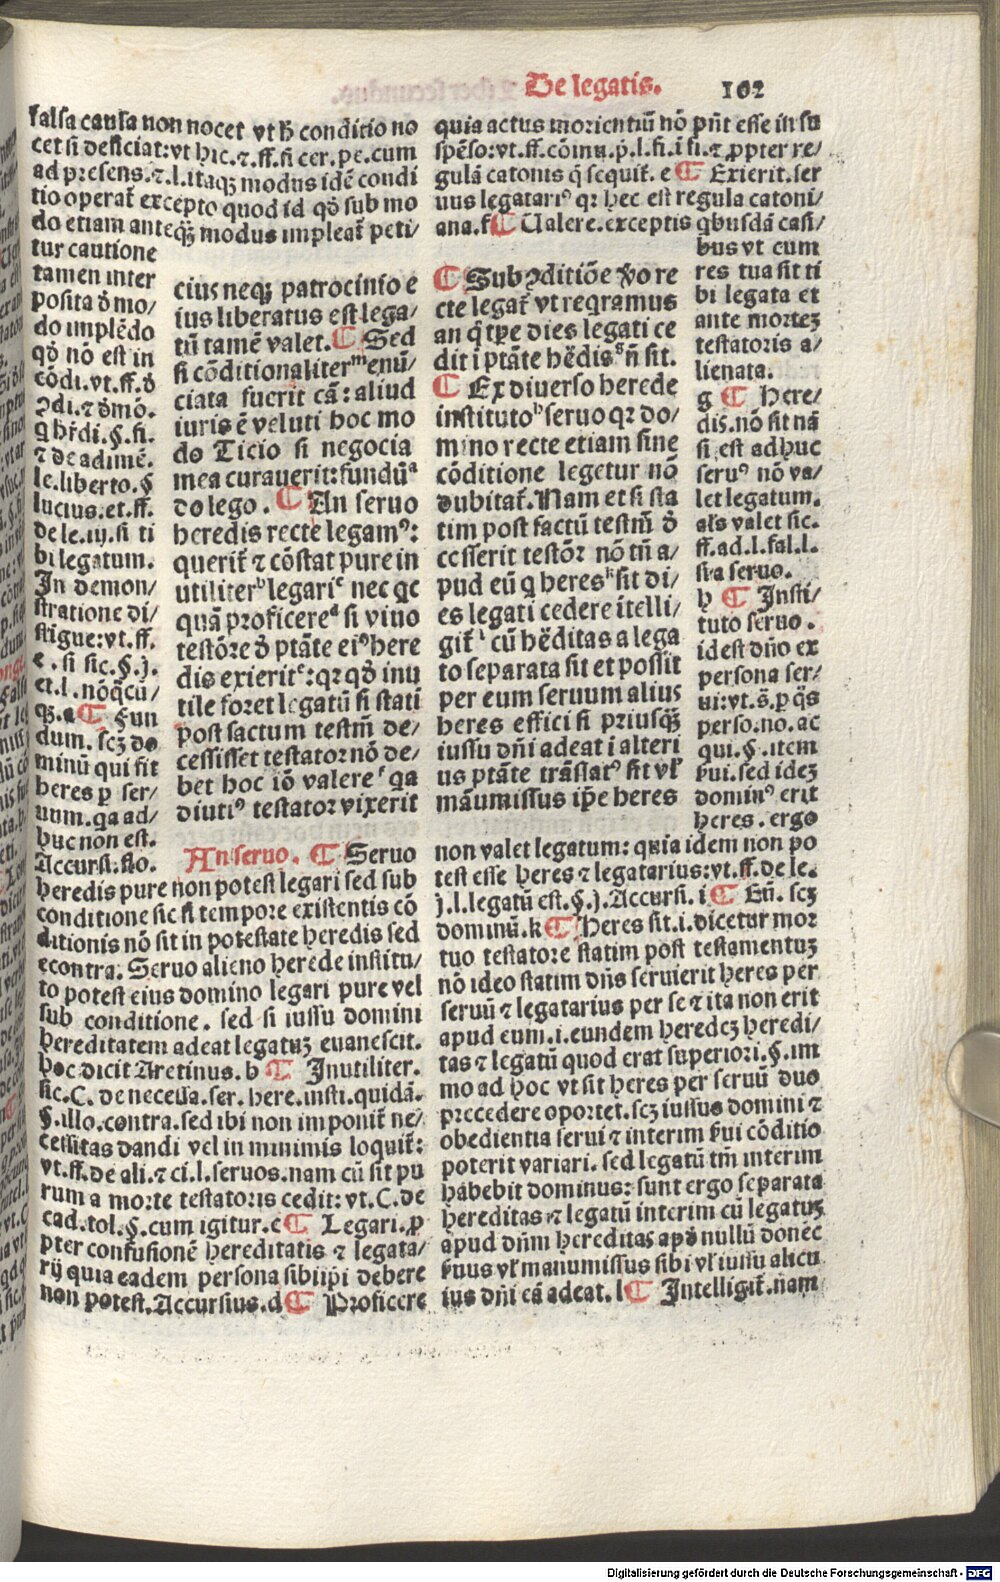 De legatis. 102
falsa causa non nocet vt h̄ conditio no
cet si deficiat:vt hic.⁊.ff.si cer.pe.cum
ad presens.⁊.l.itaqꝫ modus idē condi
tio operat̄ excepto quod id qđ sub mo
do etiam anteqꝫ̄ modus impleat̄ peti/
tur cautione
tamen inter
posita đ mo/
do implēdo
qđ nō est in
cōdi.vt.ff.đ
ↄdi.⁊ đmō.
q hr̄di.§.si.
⁊ de adimē.
le.liberto.§
lucius.et.ff.
de le.iij.si ti
bi legatum.
In demon/
stratione di/
stigue:vt.ff.
e.si sic.§.j.
et.l.nōq̄cū/
qꝫ.a ¶ Fun
dum.scꝫ do
minū qui fit
heres p ser/
uum.qa ad/
huc non est.
Accursi:sto.
An seruo. ¶ Seruo
heredis pure non potest legari sed sub
conditione sic si tempore existentis cō
ditionis nō sit in potestate heredis sed
econtra. Seruo alieno herede institu/
to potest eius domino legari pure vel
sub conditione. sed si iussu domini
hereditatem adeat legatuꝫ euanescit.
hoc dicit Aretinus.b ¶ Inutiliter.
sic.C. de necessa.ser.here.insti.quidā.
§.illo.contra.sed ibi non imponit̄ ne/
cessitas dandi vel in minimis loquit̄:
vt.ff.de ali.⁊ ci.l.seruos.nam cū sit pu
rum a morte testatoris cedit:vt.C.de
cad.tol.§.cum igitur.c ¶ Legari.p
pter confusionē hereditatis ⁊ legata/
rij quia eadem persona sibiipi debere
non potest.Accursius.d ¶ Proficere
cius neqꝫ patrocinio e
ius liberatus est lega/
tū tamē valet. ¶ Sed
si cōditionaliterᵐ enū/
ciata fuerit cā: aliud
iuris ē veluti hoc mo
do Ticio si negocia
mea curauerit:fundūᵃ
do lego. ¶ An seruo
heredis recte legamꝰ:
querit̄ ⁊ cōstat pure in
utiliterᵇ legariᶜ nec qc
quā proficereᵈ si viuo
testōre đ ptāte eiꝰ here
dis exieritᵉ:qꝛ qđ inu
tile foret legatū si stati
post factum testm̄ de/
cessisset testator nō de/
bet hoc iō valereᶠ qa
diutiꝰ testator vixerit
quia actus morientiū nō pn̄t esse in su
spēso:vt.ff.cōmu.p̄.l.fi.i fi.⁊ ꝓpter re/
gulā catonis q̄ sequit̄. e ¶ Exierit.ser
uus legatariꝰ qꝛ hec est regula catoni/
ana.f ¶ Ualere.exceptis qbusdā casi/
bus vt cum
res tua sit ti
bi legata et
ante morteꝫ
testatoris a/
lienata.
g ¶ Here/
dis.nō sit nā
si est adhuc
seruꝰ nō va/
let legatum.
als̄ valet sic.
ff.ad.l.fal.l.
si a seruo.
h ¶ Insti/
tuto seruo.
id est dn̄o ex
persona ser/
ui:vt.s̄.p q̄s
perso.no.ac
qui.§.item
ẜui.sed ideꝫ
dominꝰ erit
heres. ergo
non valet legatum: quia idem non po
test esse heres ⁊ legatarius:vt.ff.de le.
j.l.legatū est.§.j.Accursi. i ¶ Eū. scꝫ
dominū.k ¶ Heres sit.i.dicetur mor
tuo testatore statim post testamentuꝫ
nō ideo statim dn̄s seruierit heres per
seruū ⁊ legatarius per se ⁊ ita non erit
apud eum.i.eundem heredeꝫ heredi/
tas ⁊ legatū quod erat superiori.§.im
mo ad hoc vt sit heres per seruū duo
precedere oportet.scꝫ iussus domini ⁊
obedientia serui ⁊ interim ẜui cōditio
poterit variari. sed legatū tm̄ interim
habebit dominus: sunt ergo separata
hereditas ⁊ legatū interim cū legatuꝫ
apud dn̄m hereditas apđ nullū donec
ẜuus vl̄ manumissus sibi vl̄ iussu alicu
ius dn̄i eā adeat. l ¶ Intelligit̄.nam
¶ Sub ↄditiōe v̄o re
cte legat̄ vt reqramus
an q̄ tꝑe dies legati ce
dit i ptāte hēdisᵍ n̄ sit.
¶ Ex diuerso herede
institutoʰ seruo qꝛ do/
mino recte etiam sine
cōditione legetur nō
dubitat̄. Nam et si sta
tim post factū testm̄ đ
cesserit testōr nō tn̄ a/
pud eūⁱ q heresᵏ sit di/
es legati cedere ītelli/
git̄ˡ cū hēditas a lega
to separata sit et possit
per eum seruum alius
heres effici si priusqꝫ̄
iussu dn̄i adeat i alteri
us ptāte trāslatꝰ sit vl̄
māumissus ip̄e heres
Digitalisierung gefördert durch die Deutsche Forschungsgemeinschaft - DFG